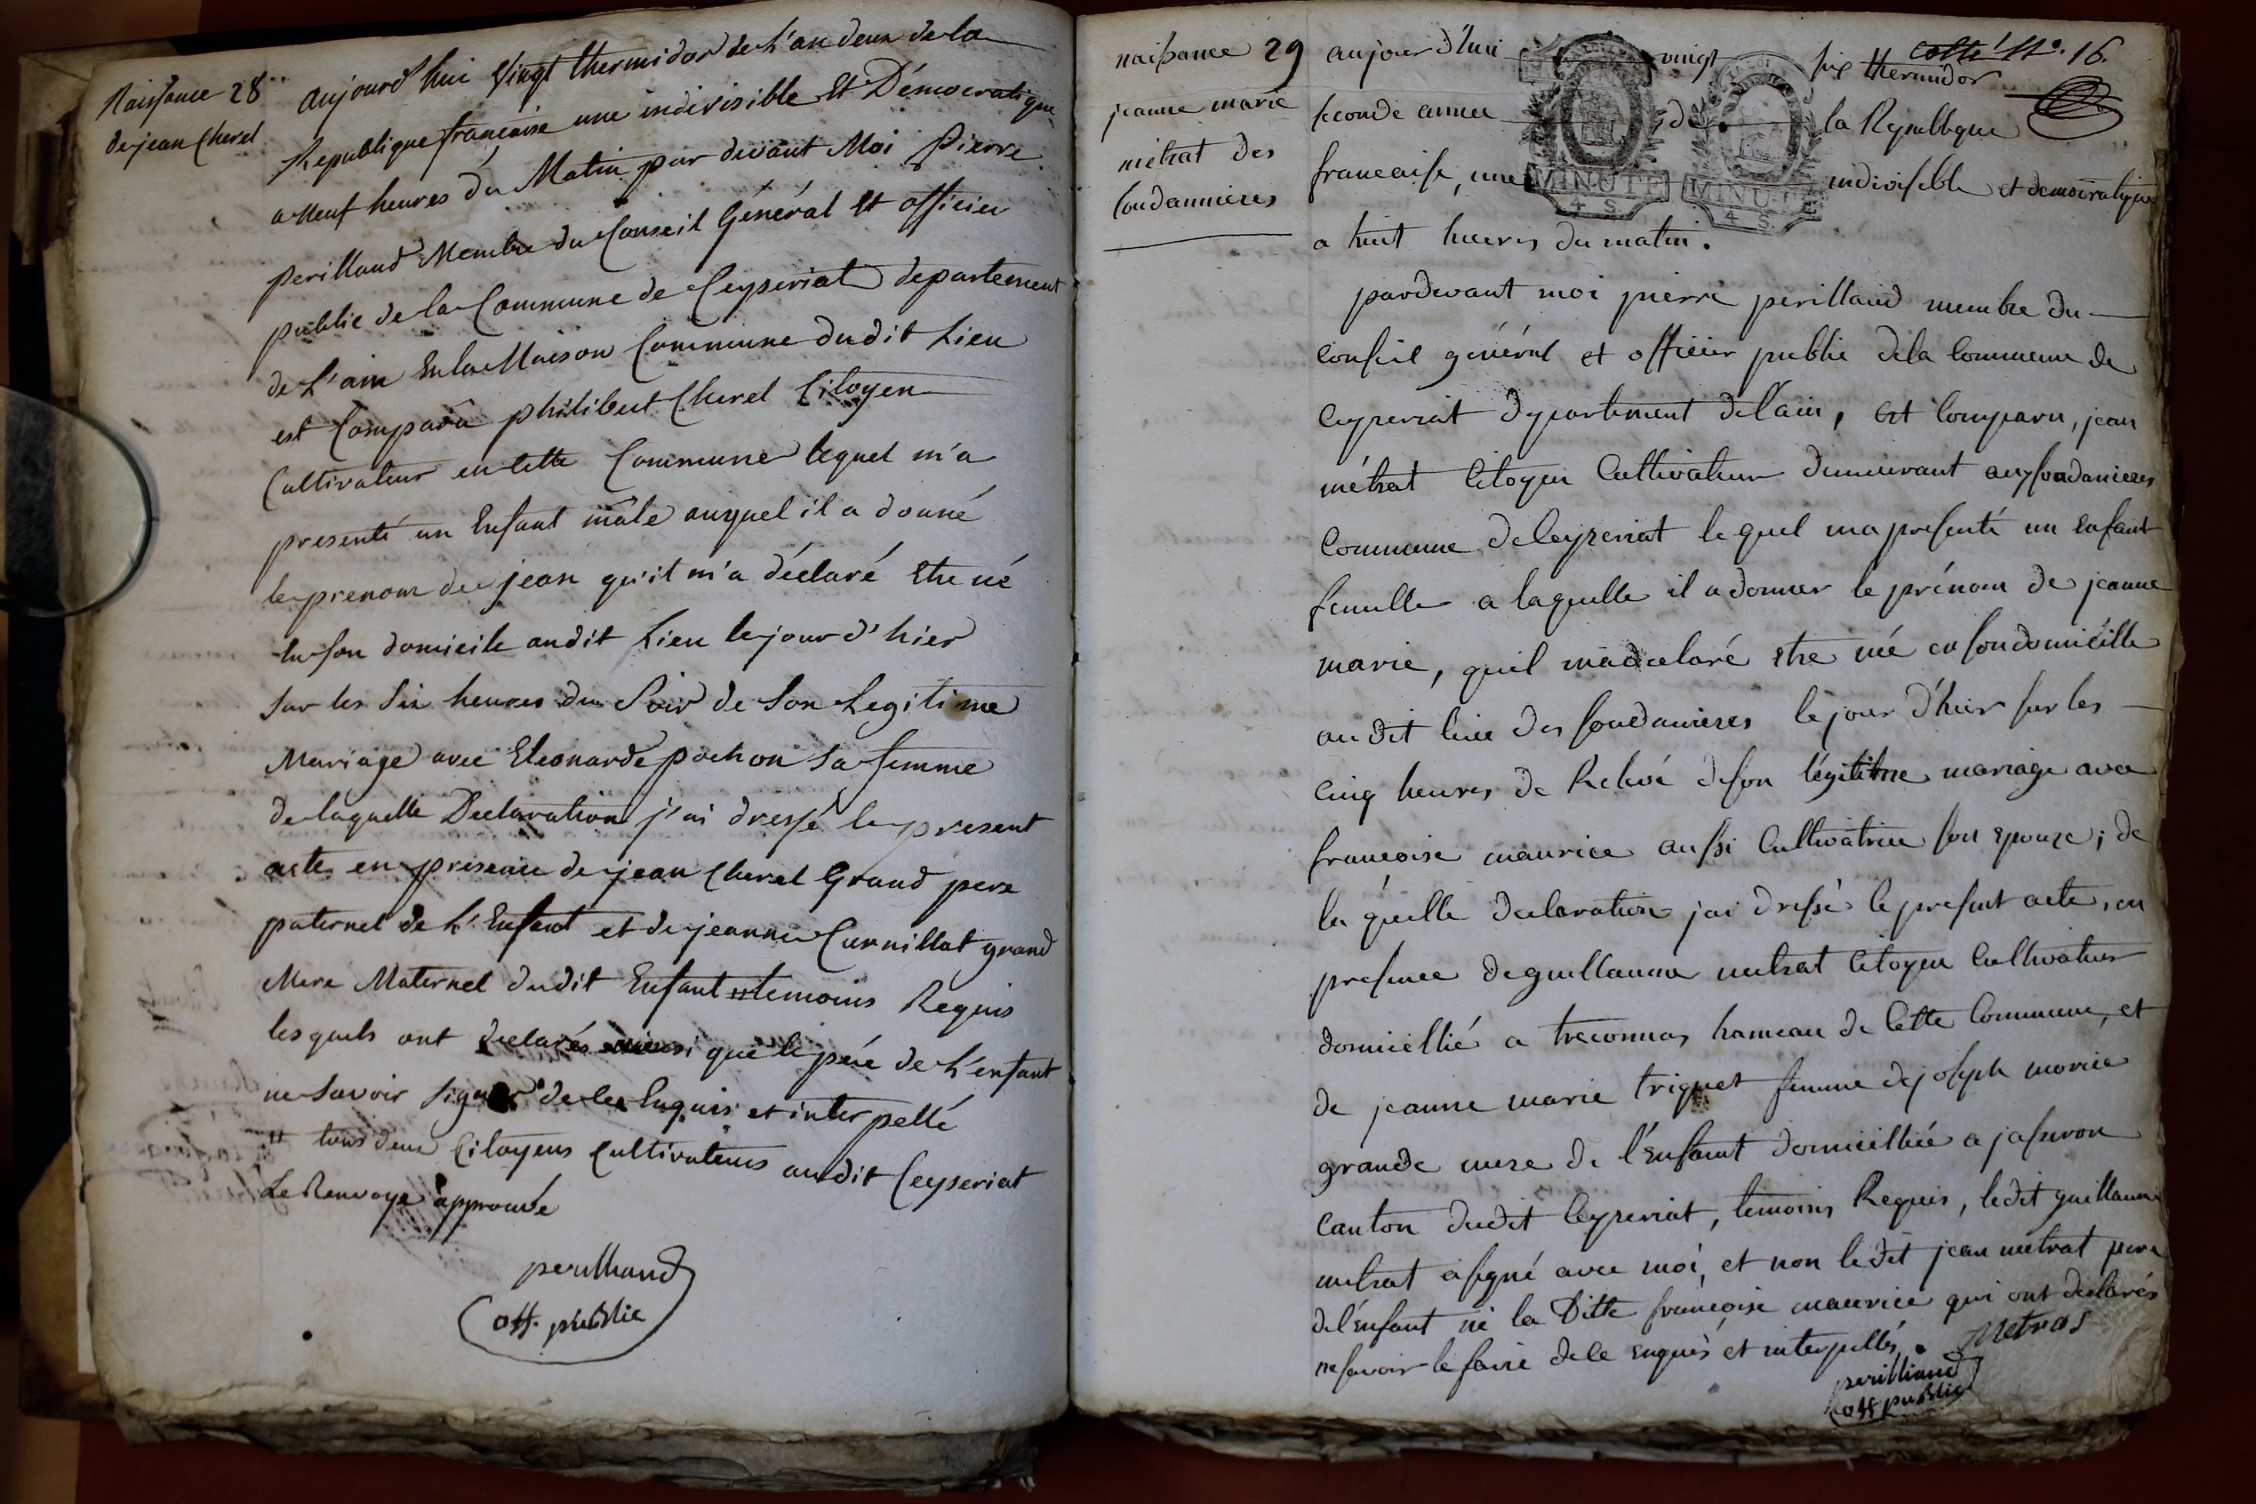 Naissance 28
de jean Cherel
aujourd'hui vingt thermidor de L'an deux de la
Republique francaise une indivisible Et Démocratique
a Neuf heures du Matin par devant Moi Pierre
perilland Membre du Conseil Général Et officier
public de la Commune de Ceyseriat departement
de L'ain En la Maison Commune dudit Lieu
est Comparu philibert Cherel Citoyen
Cultivateur en Cette Commune lequel m'a
presenté un Enfant mâle auquel il a donné
le prenom de jean qu'il m'a déclaré Etre né
En son domicile audit Lieu le jour d'hier
sur les Six heures du Soir de Son Legitime
Mariage avec Eleonarde pochon Sa femme
de laquelle Declaration j'ai dressé le present
acte en presence de jean Cherel Grand pere
paternel de L'Enfant et de jeanne Curnillat grand
Mere Maternel dudit Enfant # temoins Requis
les quels ont declarés ainsi que le pére de L'enfant
ne Savoir Signer de ce Enquis et interpellé
# tous deux Citoyens Cultivateurs audit Ceyseriat
Le Renvoye approuvée
perilland
off. public
cotté No. 16.
naissance 29
jeanne marie
métrat des
Soudannieres
aujourd'hui vingt six thermidor
seconde année de la Republique
francaise, une indivisible et democratique
a huit heures du matin.
pardevant moi pierre perilland membre du
conseil général et officier public dela commune de
ceyzeriat departement de l'ain, est comparu, jean
métrat Citoyen Cultivateur demeurant aux soudanieres
commune de Ceyzeriat lequel ma presenté un enfant
femelle a laquelle il a donner le prénom de jeanne
marie, quil ma declaré etre née en son domicille
au dit lieu des soudanieres le jour d'hier sur les
cinq heures de Relevé de son légitime mariage avec
françoise maurice aussi Cultivatrice son epouze; de
la quelle declaration jai dressé le present acte, en
presence de guillaume metrat Citoyen Cultivateur
domicillié a treconnas hameau de Cette Commune, et
de jeanne marie triquet femme de joseph morice
grande mere de l'Enfant domicilliée a jasseron
canton dudit Ceyzeriat, temoins Requis, ledit guillaume
metrat a signé avec moi, et non le dit jean métrat pere
de l'enfant ni la Ditte françoise maurice qui ont déclarés
ne savoir le faire de ce enquis et interpellés.
Metras
perilland
off public
MINUTE
4 S
MINUTE
4 S